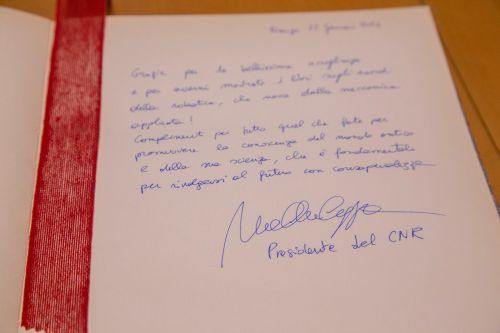 Firenze 22 Gennaio 2024
Grazie per la bellissima accoglienza
e per avermi mostrato i libri sugli
della robotica, che nasce dalla meccanica
applicata!
Complimenti per tutto quel che fate per
promuovere la conoscenza del mondo antico
e della sua scienza, che è fondamentale
per rivolgersi al futuro con consapevolezza
Presidente del CNR